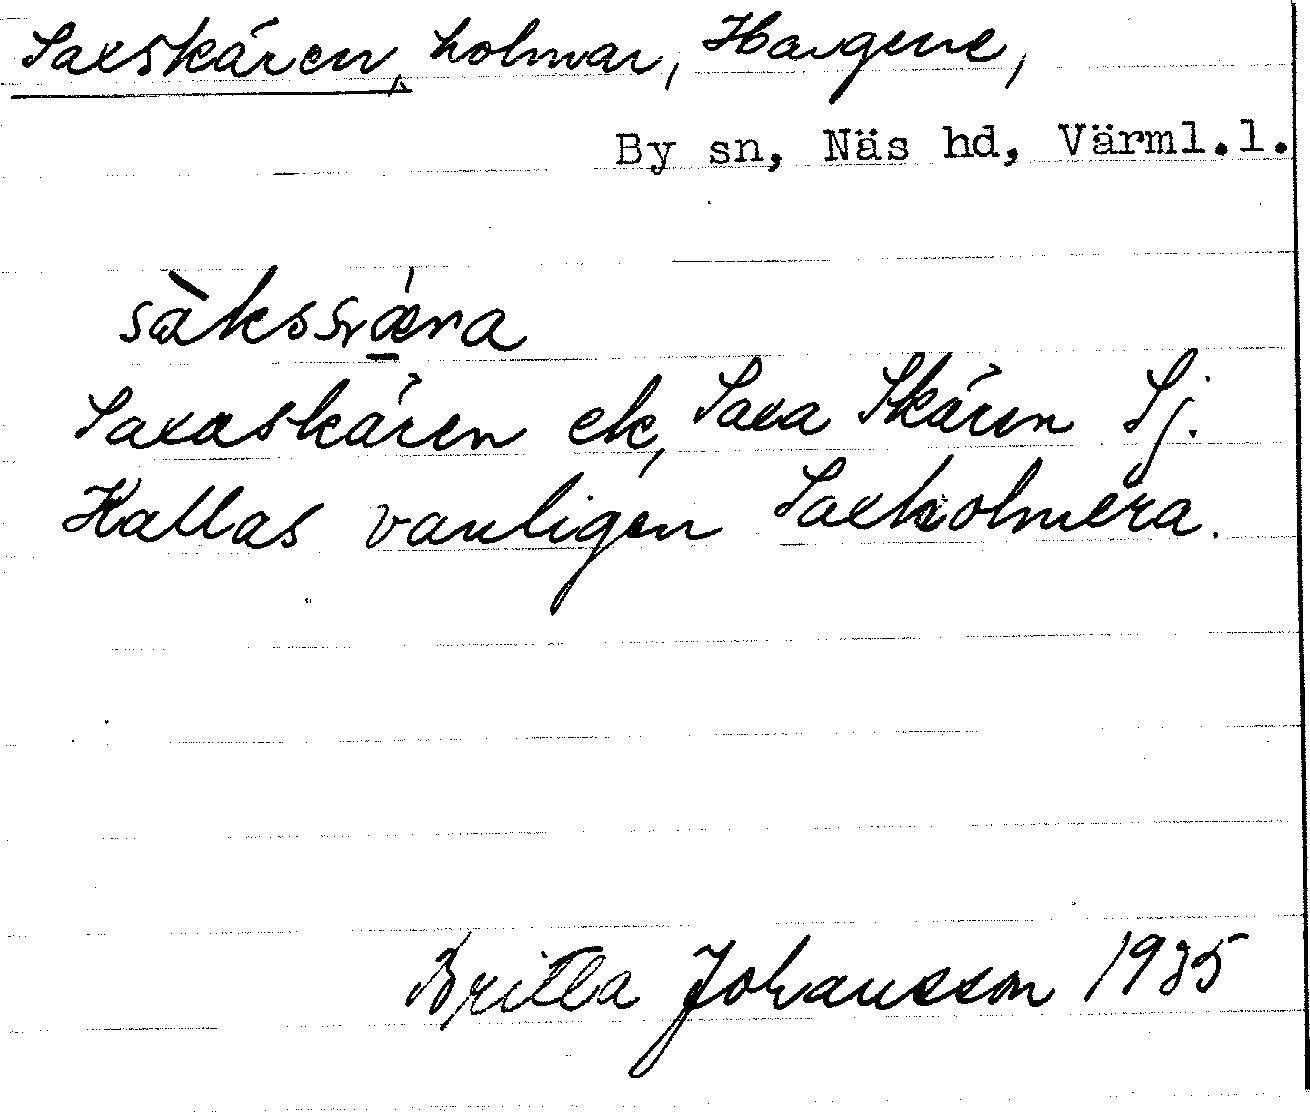 Saxskären, holmar, Hargene,
By sn, Näs hd, Värml.l.
Saxaskären ek, Saxa Skären Sj.
Kallas vanligen Saxholmera.
Britta Johansson 1935